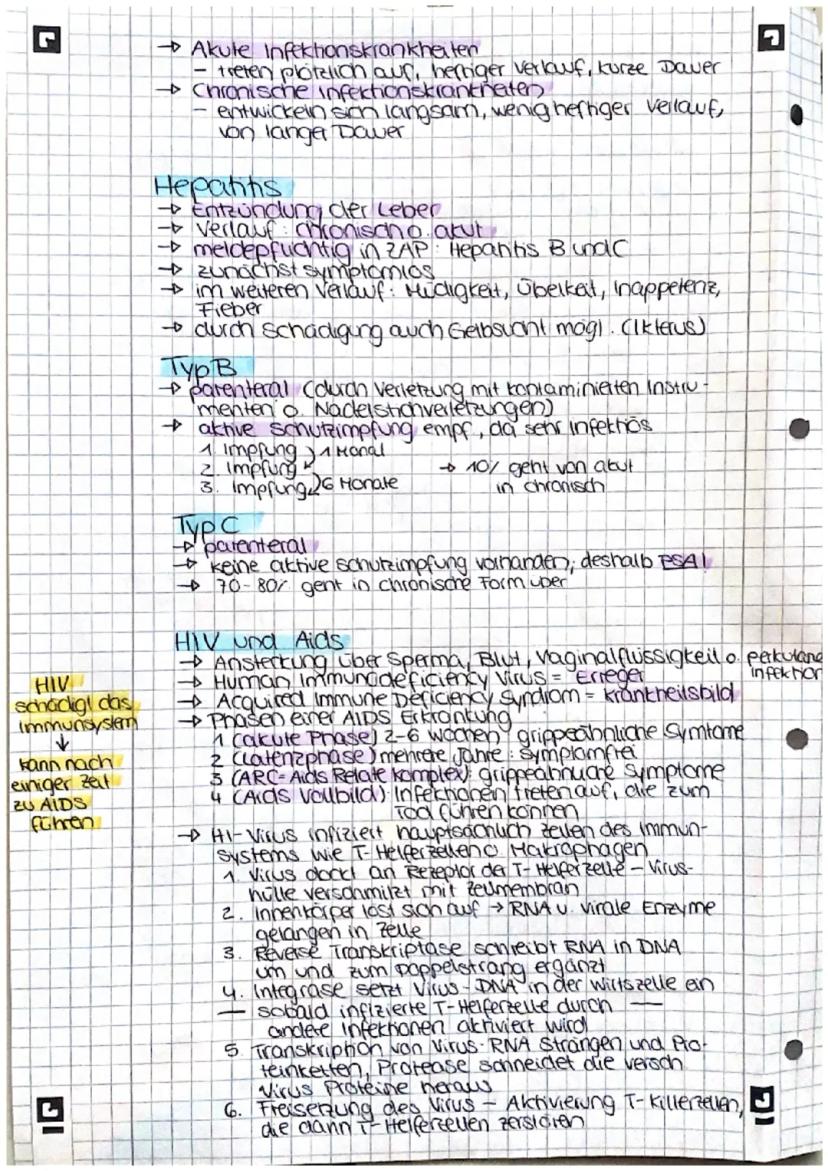 → Akute Infektionskrankheiten
- treten plötzlich auf, heftiger Verlauf, kurze Dauer
→ Chronische Infektionskrankheiten
- entwickeln sich langsam, wenig heftiger Verlauf,
von langer Dauer
Hepatitis
→ Entzündung der Leber
→ Verlauf: chronisch o. akut
→ meldepflichtig in ZAP: Hepatitis B und C
→ zunächst symptomlos
→ im weiteren Verlauf: Müdigkeit, Übelkeit, Inappetenz,
Fieber
→ durch Schädigung auch Gelbsucht mögl. (Ikterus)
Typ B
→ parenteral (durch Verletzung mit kontaminierten Instru-
menten o. Nadelstichverletzungen)
→ aktive Schutzimpfung empf., da sehr infektiös
1. Impfung } 1 Monat
2. Impfung → 10% geht von akut
3. Impfung } 6 Monate in chronisch
Typ C
→ parenteral
→ keine aktive Schutzimpfung vorhanden, deshalb PSA!
→ 70-80% geht in chronische Form über
HIV und Aids
→ Ansteckung über Sperma, Blut, Vaginalflüssigkeit o. perkutane
Infektion
→ Human Immunodeficiency Virus = Erreger
→ Acquired Immune Deficiency Syndrom = Krankheitsbild
→ Phasen einer AIDS Erkrankung
1 (akute Phase) 2-6 Wochen grippeähnliche Symtome
2 (Latenzphase) mehrere Jahre: symptomfrei
3 (ARC= Aids Relate Komplex): grippeähnliche Symptome
4 (Aids Vollbild): Infektionen treten auf, die zum
Tod führen können
HIV
schädigt das
Immunsystem
↓
kann nach
einiger Zeit
zu AIDS
führen
→ HI-Virus infiziert hauptsächlich Zellen des Immun-
systems wie T-Helferzellen o. Makrophagen
1. Virus dockt an Rezeptor der T-Helferzelle – Virus-
hülle verschmilzt mit Zellmembran
2. Innenkörper löst sich auf → RNA u. virale Enzyme
gelangen in Zelle
3. Reverse Transkriptase schreibt RNA in DNA
um und zum Doppelstrang ergänzt
4. Integrase setzt Virus-DNA in der Wirtszelle ein
— sobald infizierte T-Helferzelle durch —
andere Infektionen aktiviert wird
5. Transkription von Virus-RNA Strängen und Pro-
teinketten, Protease schneidet die versch
Virus Proteine heraus
6. Freisetzung des Virus – Aktivierung T-Killerzellen,
die dann T-Helferzellen zerstören